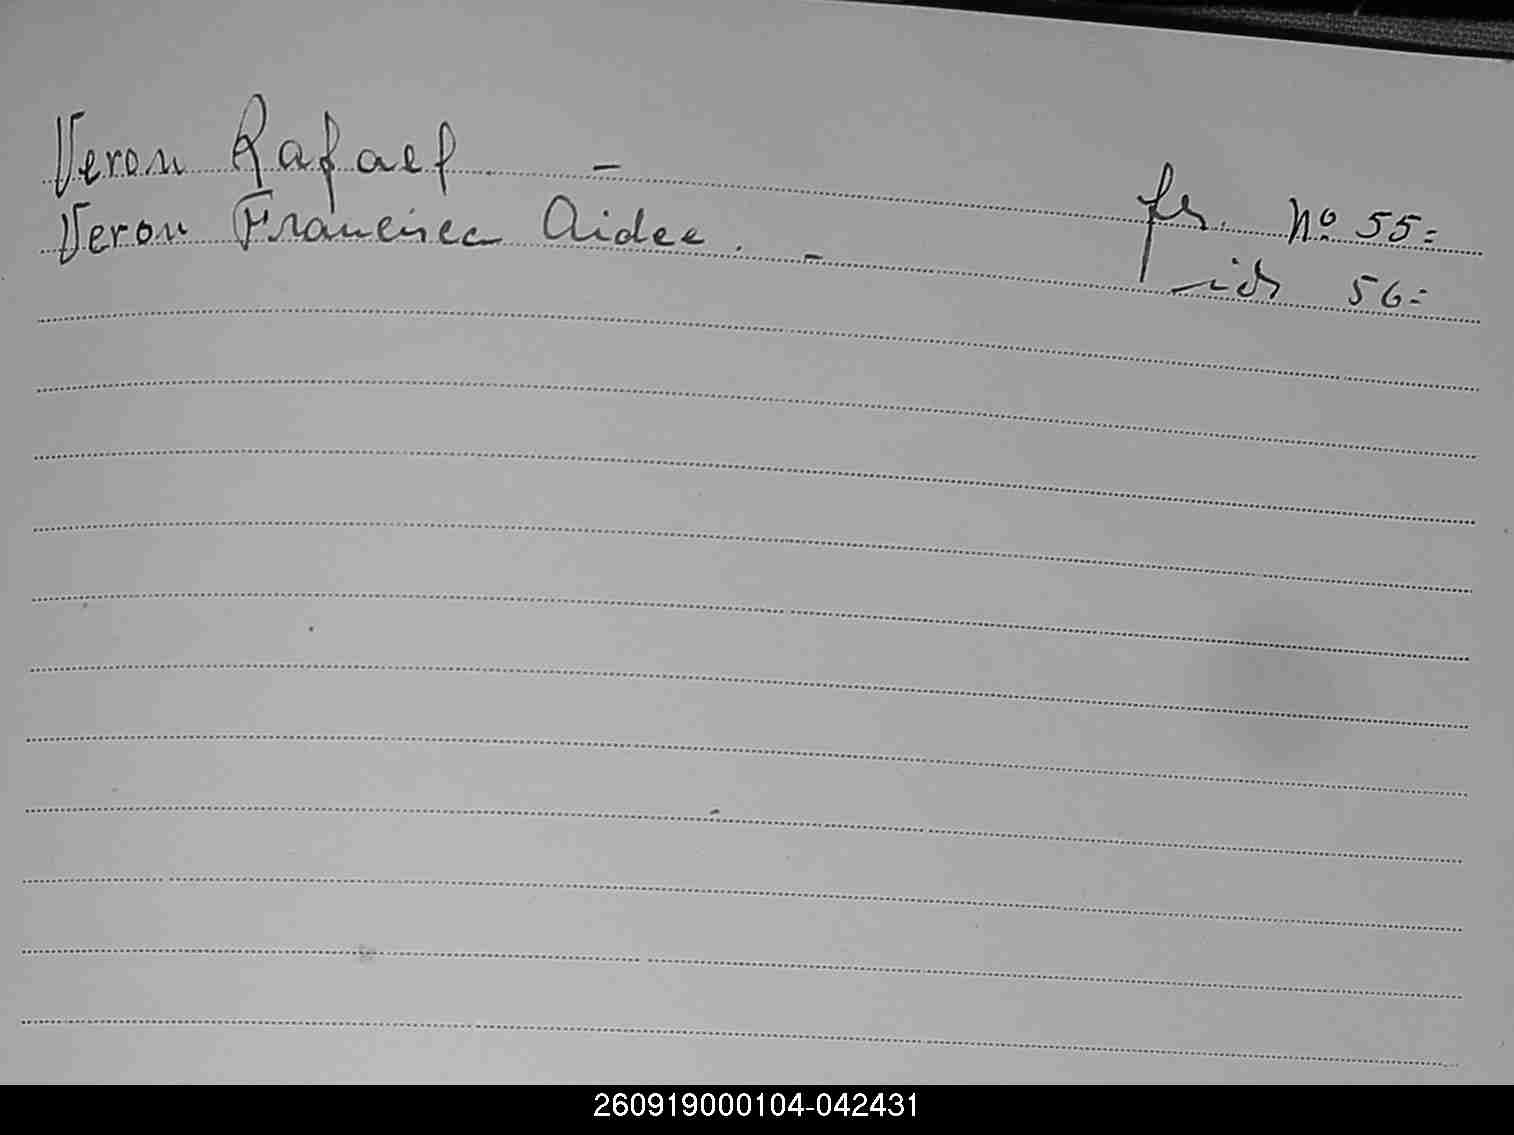 Veron Rafael. - fs. Nº 55=
Veron Francisca Aidee. - id 56=
260919000104-042431